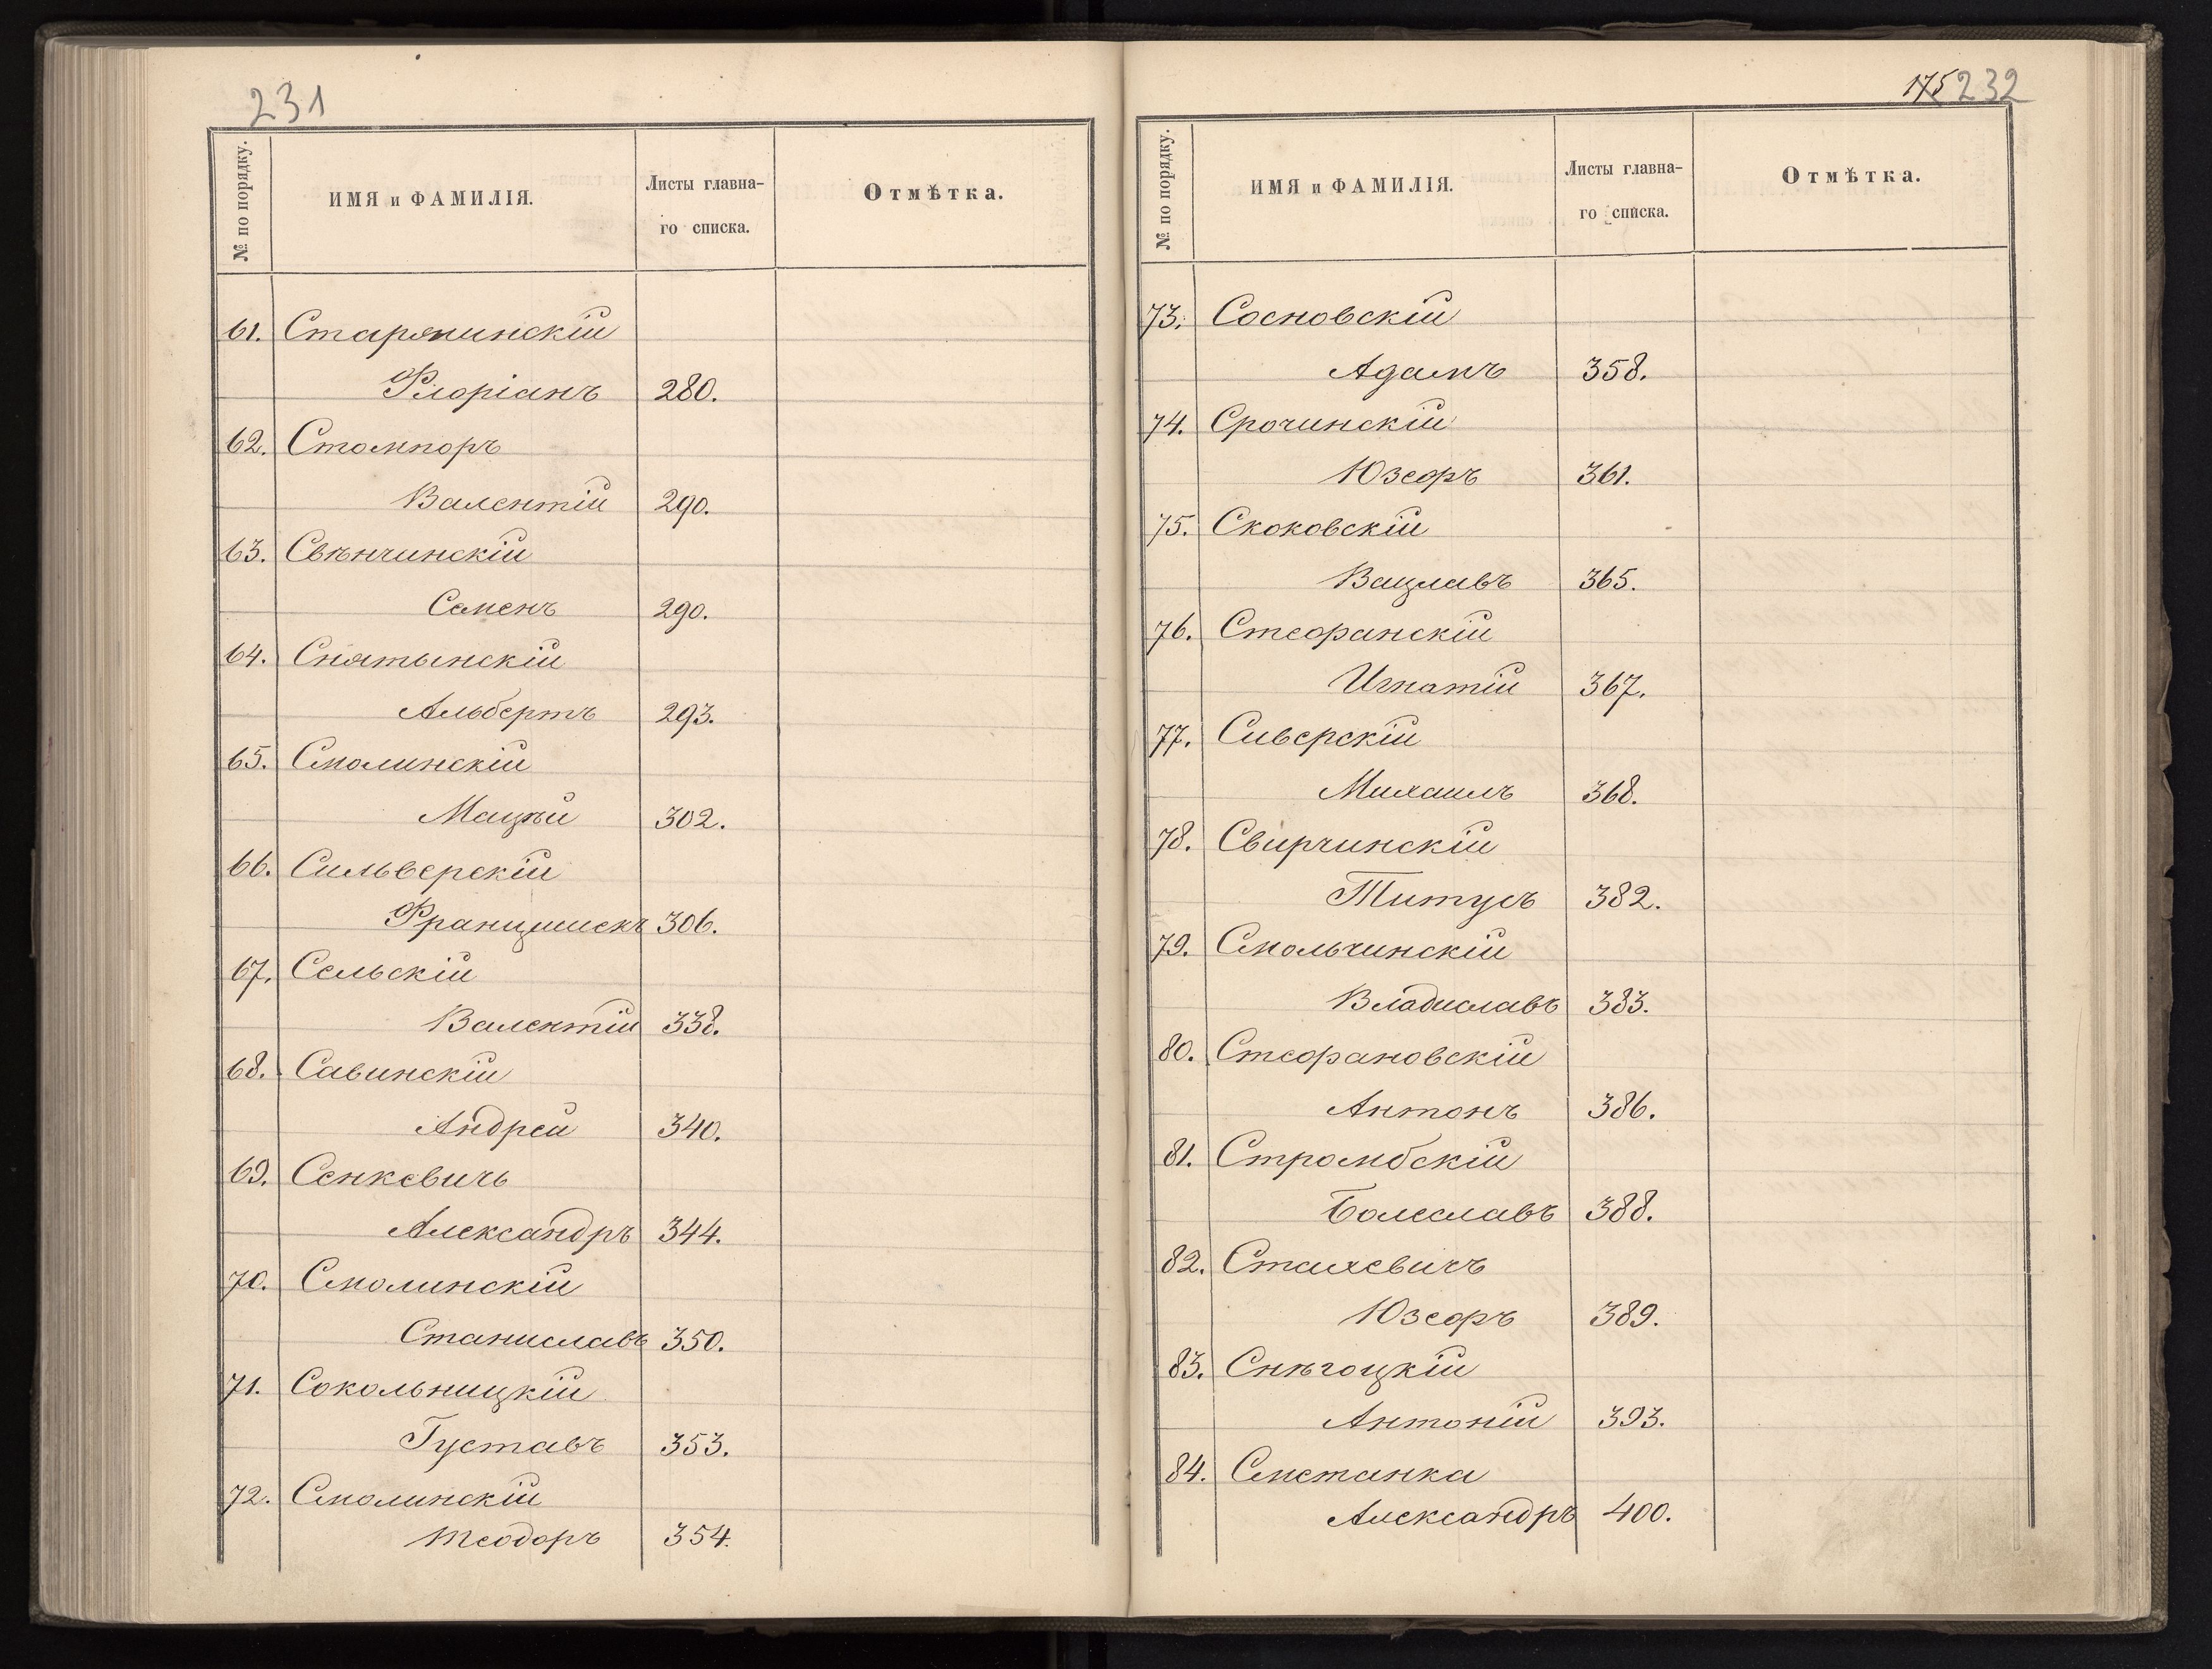 231
№ по порядку.
ИМЯ и ФАМИЛІЯ.
Листы главна-
го списка.
Отмѣтка.
61. Старжинскій
Флоріанъ 280.
62. Стомпоръ
Валентій 290.
63. Свѣнчинскій
Семенъ 290.
64. Снятынскій
Альбертъ 293.
65. Смолинскій
Мацѣй 302.
66. Сильверскій
Францишекъ 306.
67. Сельскій
Валентій 338.
68. Савинскій
Андрей 340.
69. Сенкевичь
Александръ 344.
70. Смолинскій
Станиславъ 350.
71. Сокольницкій
Густавъ 353.
72. Смолинскій
Теодоръ 354.
175 232
№ по порядку.
ИМЯ и ФАМИЛІЯ.
Листы главна-
го списка.
Отмѣтка.
73. Сосновскій
Адамъ 358.
74. Срочинскій
Юзефъ 361.
75. Скоковскій
Вацлавъ 365.
76. Стефанскій
Игнатій 367.
77. Сиверскій
Михаилъ 368.
78. Свирчинскій
Титусъ 382.
79. Смольчинскій
Владиславъ 383.
80. Стефановскій
Антонъ 386.
81. Стромбскій
Болеславъ 388.
82. Стахевичъ
Юзефъ 389.
83. Снѣгоцкій
Антоній 393.
84. Сметанка
Александръ 400.